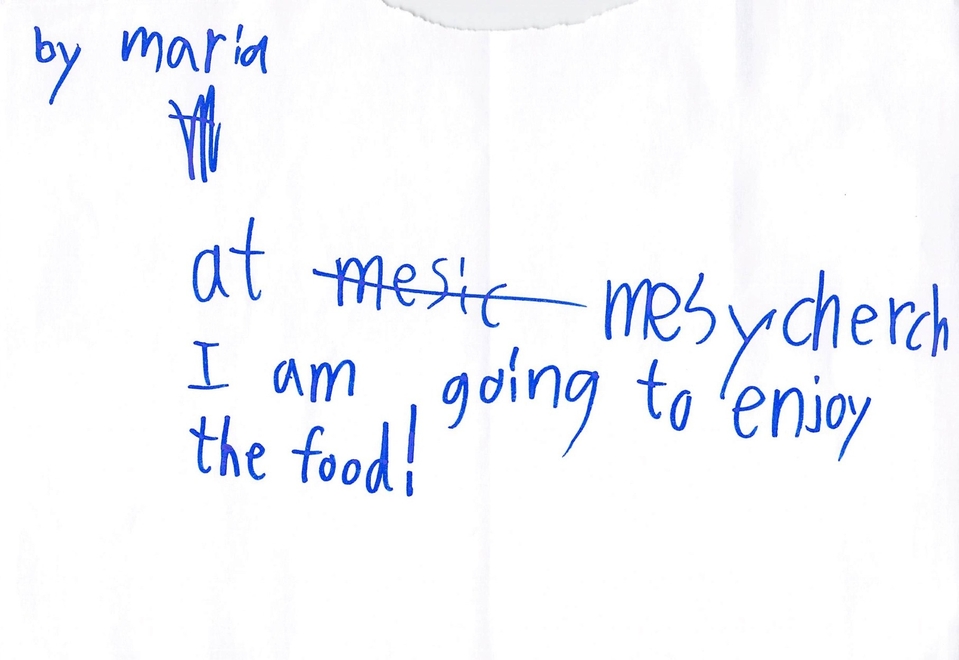 by maria
at mesic mesycherch
I am going to enjoy
the food!